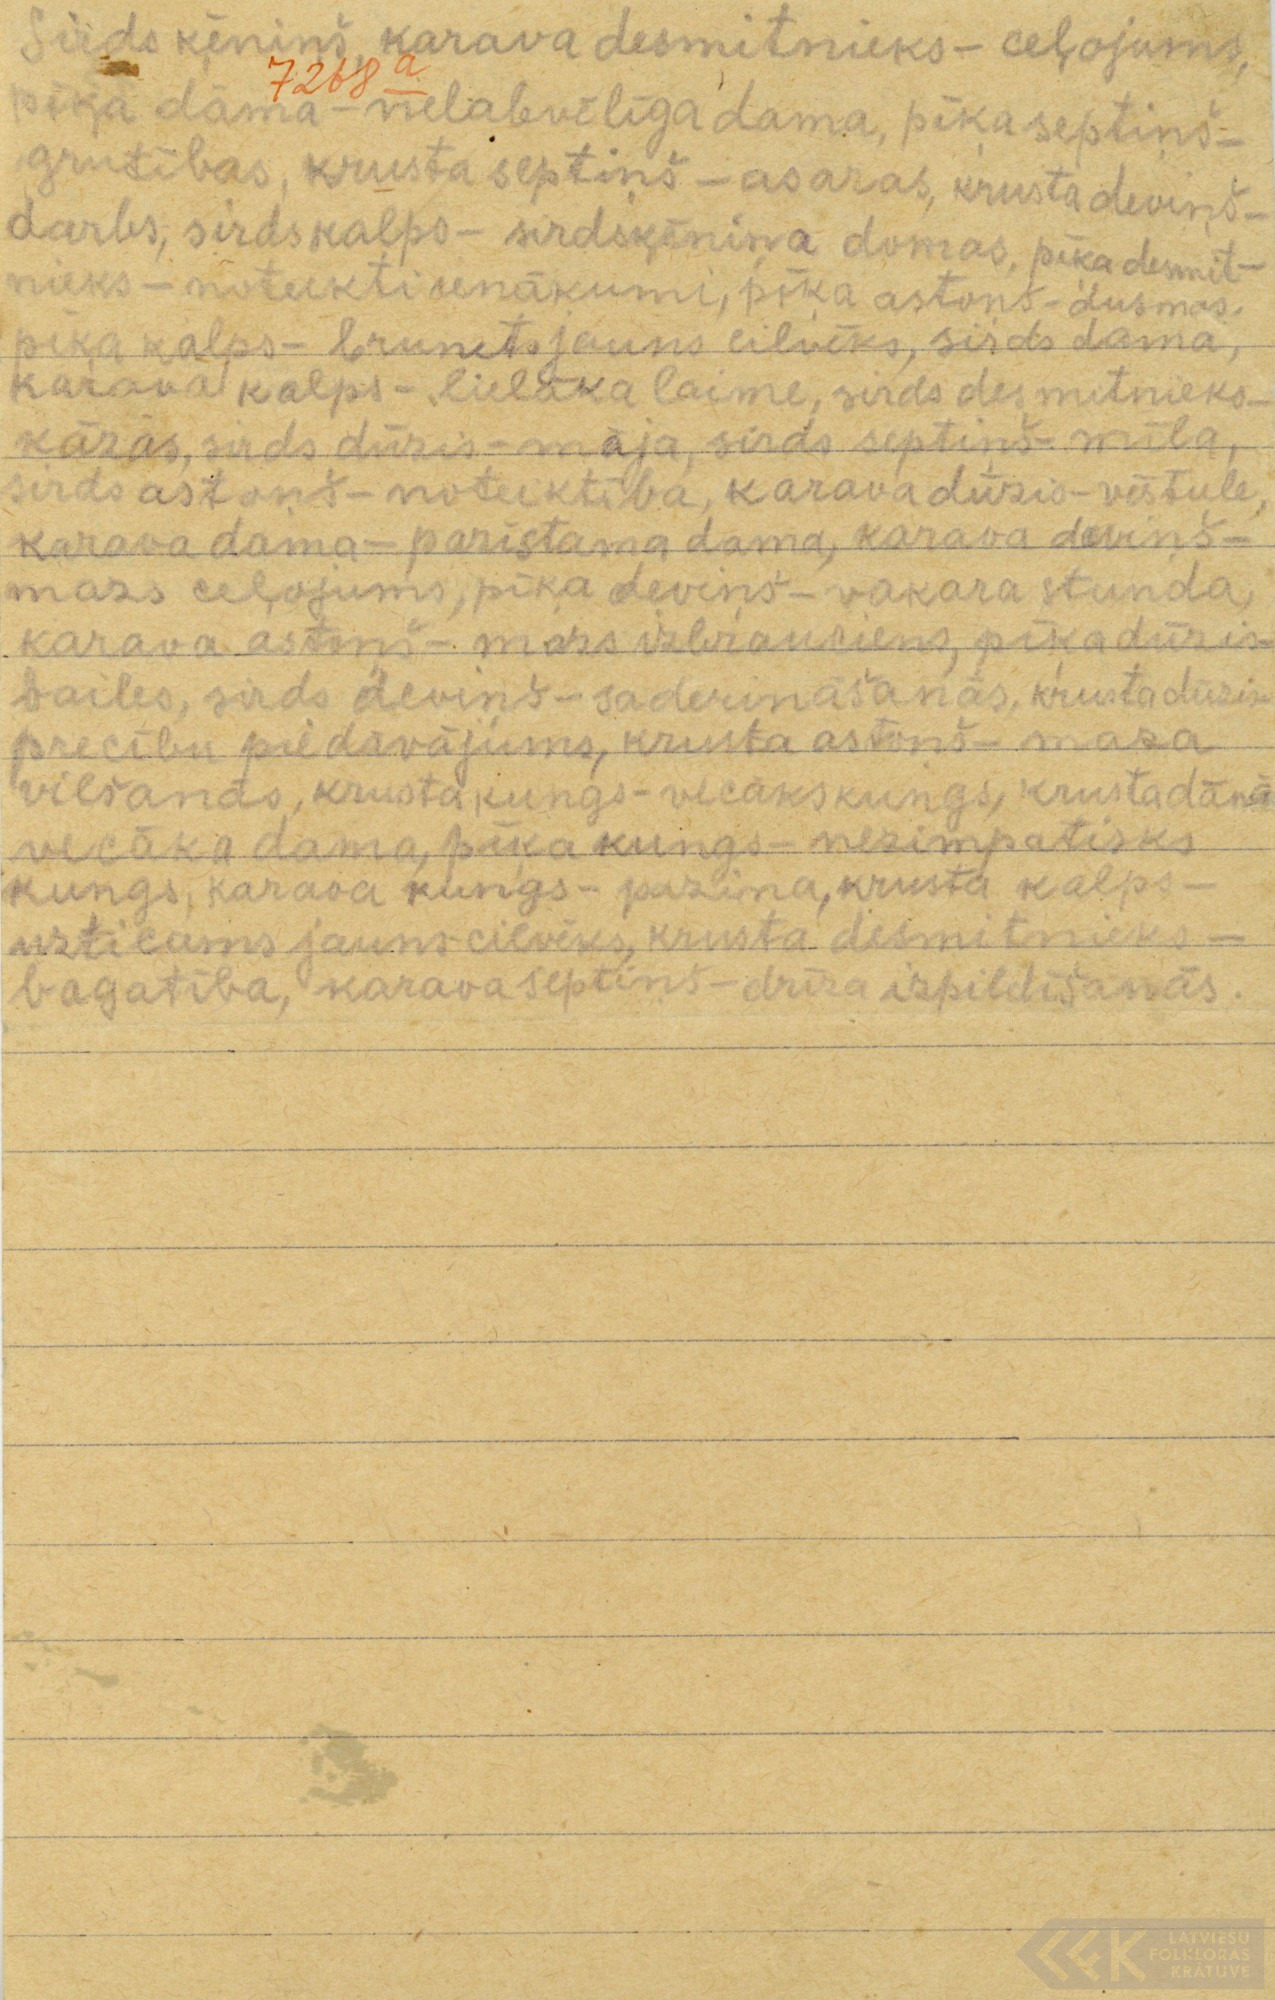 Sirds ķēniņš, karava desmitnieks - ceļojums,
7268 a
pīķa dāma - nelabvēlīga dāma, pīķa septiņš -
grūtības, krusta septiņš - asaras, krusta deviņš -
darbs, sirds kalps - sirdsķēniņa domas, pīķa desmit-
nieks - noteikti ienākumi, pīķa astoņš - dusmas.
pīķa kalps - brunets jauns cilvēks, sirds dāma,
karava kalps - lielāka laime, sirds desmitnieks -
kāzās, sirds dūzis - māja, sirds septiņš - mīla,
sirds astoņš - noteiktība, karava dūzis - vēstule,
karava dāma - pazīstama dama, karava deviņš -
mazs ceļojums, pīķa deviņš - vakara stunda,
karava astoņš - mazs izbrauciens, pīķa dūzis -
bailes, sirds deviņš - saderināšanās, krusta dūzis
precību piedāvājums, krusta astoņš - maza
vilšanās, krusta kungs - vecāks kungs, krusta dāma
vecāka dama, pīķa kungs - nesimpatisks
kungs, karava kungs - paziņa, krusta kalps -
uzticams jauns cilvēks, krusta desmitnieks -
bagatība, karava septiņš - drīza izpildīšanās.
LATVIEŠU
FOLKLORAS
KRĀTUVE